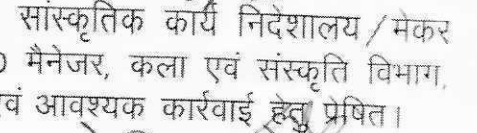 सांस्कृतिक कार्य निदेशालय / मेकर
मैनेजर, कला एवं संस्कृति विभाग,
वं आवश्यक कार्रवाई हेतु प्रेषित।